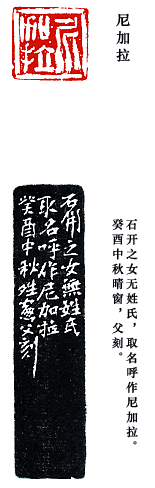 尼加拉
尼
加拉
石开之女无姓氏，取名呼作尼加拉。
癸酉中秋晴窗，父刻。
石開之女無姓氏
取名呼作尼加拉
癸酉中秋晴窗父刻